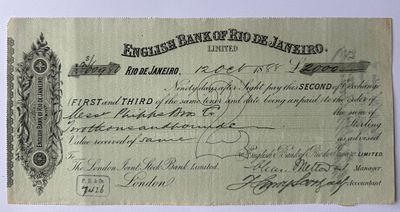 ENGLISH BANK OF RIO DE JANEIRO.
LIMITED
RIO DE JANEIRO, 12 Oct 1888 £2000
Ninety days after Sight pay this SECOND of Exchange
FIRST and THIRD of the same tenor and date being unpaid to the order of
Mess Phipps Bros Co the sum of
Two thousand pounds Sterling
Value received of same as advised
To English Bank of Rio de Janeiro, LIMITED
The London Joint Stock Bank Limited. Manager
London Accountant
7426
ENGLISH BANK OF RIO DE JANEIRO
LIMITED